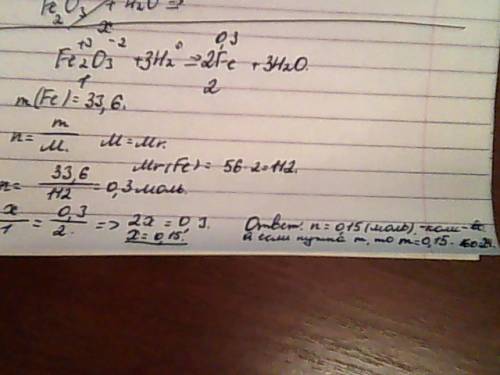 Fe₂O₃ + H₂O ⇒
x 0,3
Fe₂⁺³O₃⁻² + 3H₂⁰ ⇒ 2Fe + 3H₂O.
1 2
m(Fe) = 33,6.
n = m/M. M = Mr.
Mr(Fe) = 56·2 = 112.
n = 33,6/112 = 0,3 моль.
x/1 = 0,3/2. => 2x = 0,3.
x = 0,15.
Ответ: n = 0,15 (моль), -кол-
и если нужна m, то m = 0,15 ·